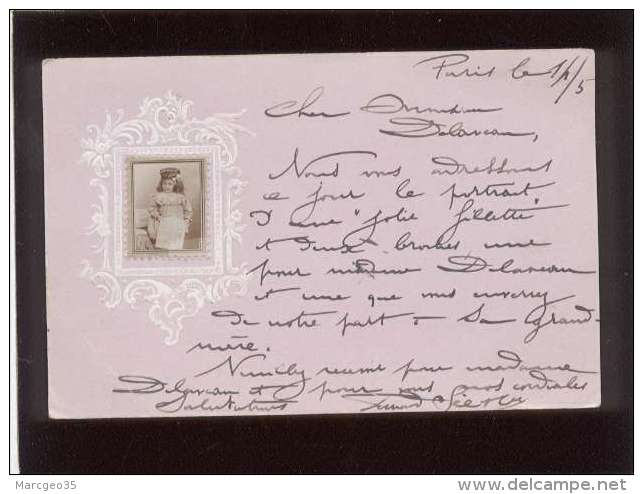 Paris le 1/1/5
Cher Monsieur
Delaveau,
Nous vous adressons
ce jour le portrait
d'une "jolie fillette"
et deux broches une
pour madame Delaveau
et une que vous enverrez
de notre part à Sa grand-
mère.
Veuillez recevoir pour madame
Delaveau et pour vous nos cordiales
Salutations
Marcgeo35
http://www.delcampe.net